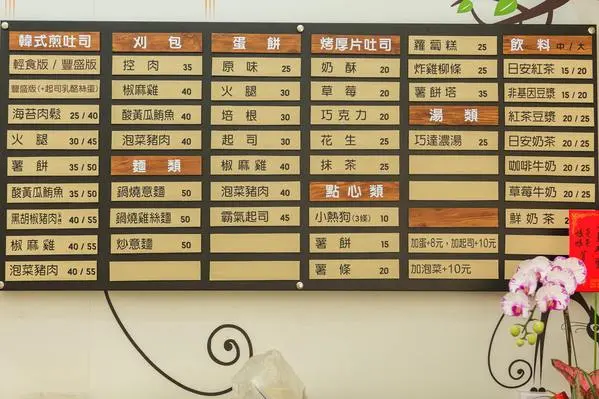 韓式煎吐司
輕食版 / 豐盛版
豐盛版(+起司乳酪絲蛋)
海苔肉鬆 25 / 40
火腿 30 / 45
薯餅 35 / 50
酸黃瓜鮪魚 35 / 50
黑胡椒豬肉 40 / 55
椒麻雞 40 / 55
泡菜豬肉 40 / 55
刈包
控肉 35
椒麻雞 40
酸黃瓜鮪魚 40
泡菜豬肉 40
麵類
鍋燒意麵 50
鍋燒雞絲麵 50
炒意麵 50
蛋餅
原味 25
火腿 30
培根 30
起司 30
椒麻雞 40
泡菜豬肉 40
霸氣起司 45
烤厚片吐司
奶酥 20
草莓 20
巧克力 20
花生 25
抹茶 25
點心類
小熱狗(3條) 10
薯餅 15
薯條 20
蘿蔔糕 25
炸雞柳條 25
薯餅塔 35
湯類
巧達濃湯 25
加蛋+8元, 加起司+10元
加泡菜+10元
飲料 中 / 大
日安紅茶 15 / 20
非基因豆漿 15 / 20
紅茶豆漿 20 / 25
日安奶茶 20 / 25
咖啡牛奶 20 / 25
草莓牛奶 20 / 25
鮮奶茶